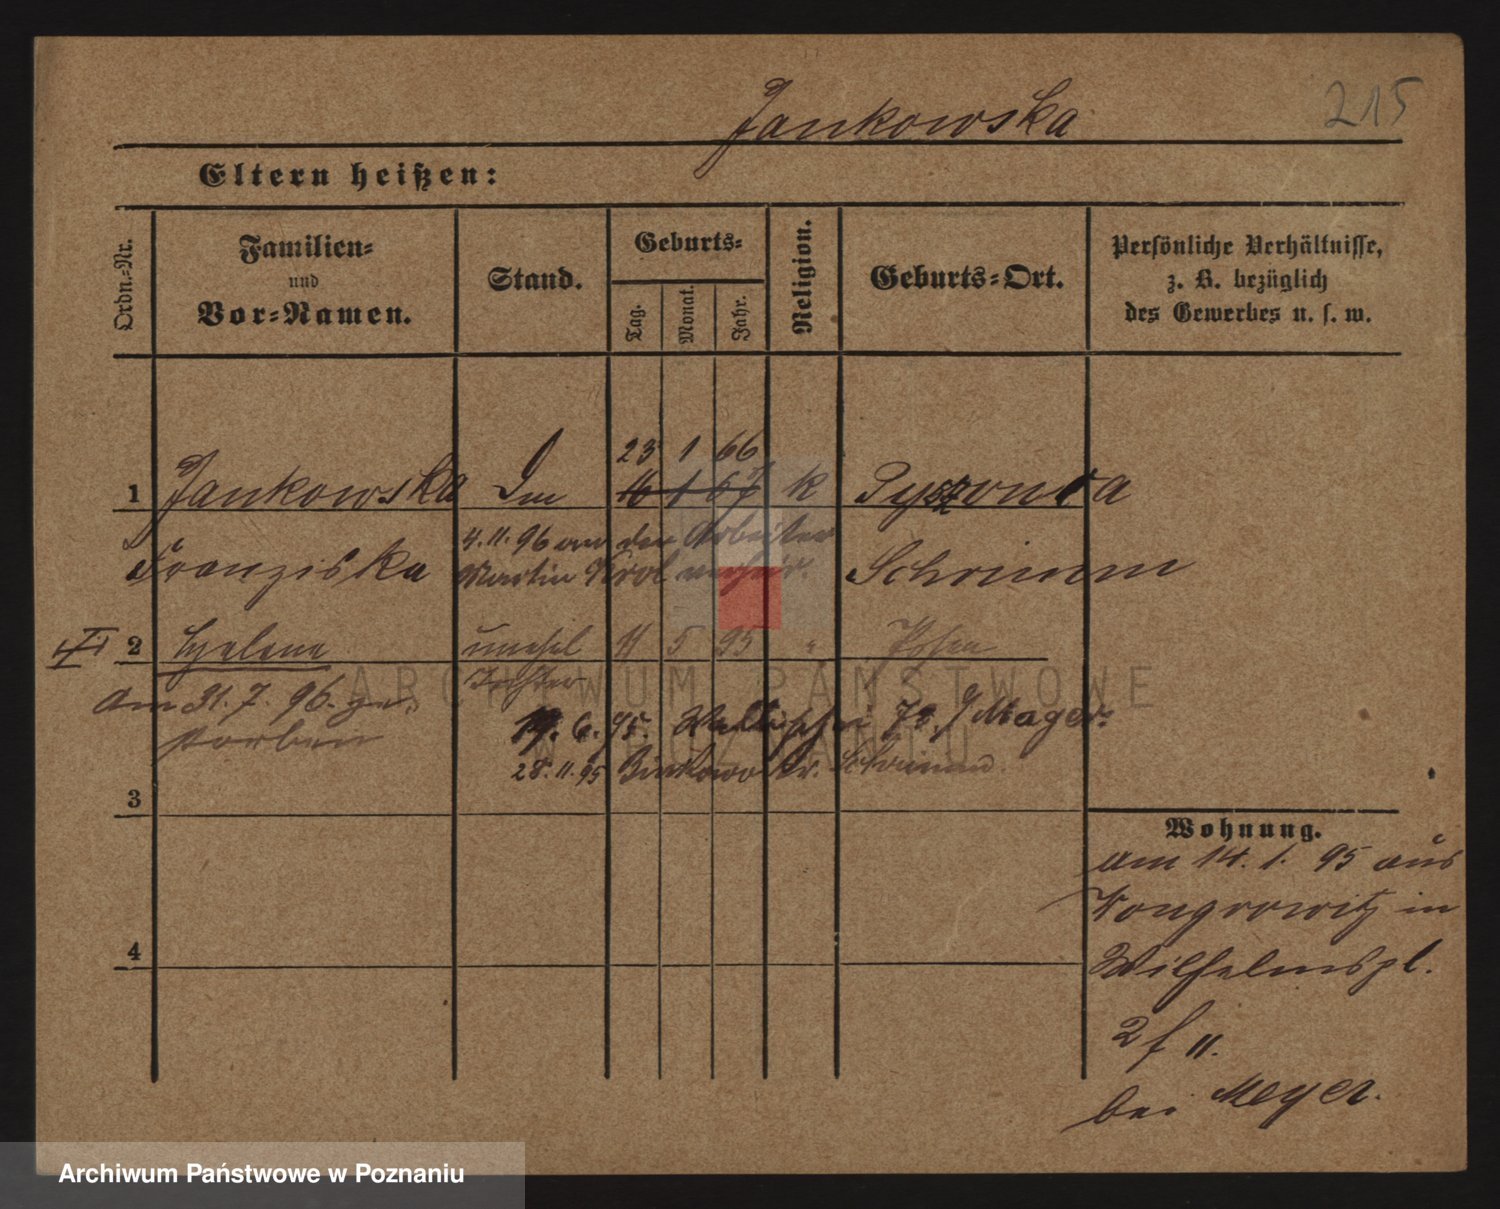 Jankowska 215
Eltern heißen:
Ordn.-Nr. Familien- und Vor-Namen. Stand. Geburts- Tag. Monat. Jahr. Religion. Geburts-Ort. Persönliche Verhältnisse, z. B. bezüglich des Gewerbes u. s. w.
23 1 66
1 Jankowska 16 1 67 k Pysząca
4.11.96 an den Arbeiter
Franziska Martin Krol verheir. Schrimm
2 Helene unehel 11 5 95 " Posen
Tochter
am 31.7.96. ge-
storben
19.6.95. Wallischei 73 Mager.
28.11.95 Binkowo Kr. Schrimm.
3
Wohnung.
am 14.1.95 aus
Wongrowitz in
Wilhelmspl.
2 II.
4
bei Meyer.
ARCHIWUM PAŃSTWOWE
W POZNANIU
Archiwum Państwowe w Poznaniu